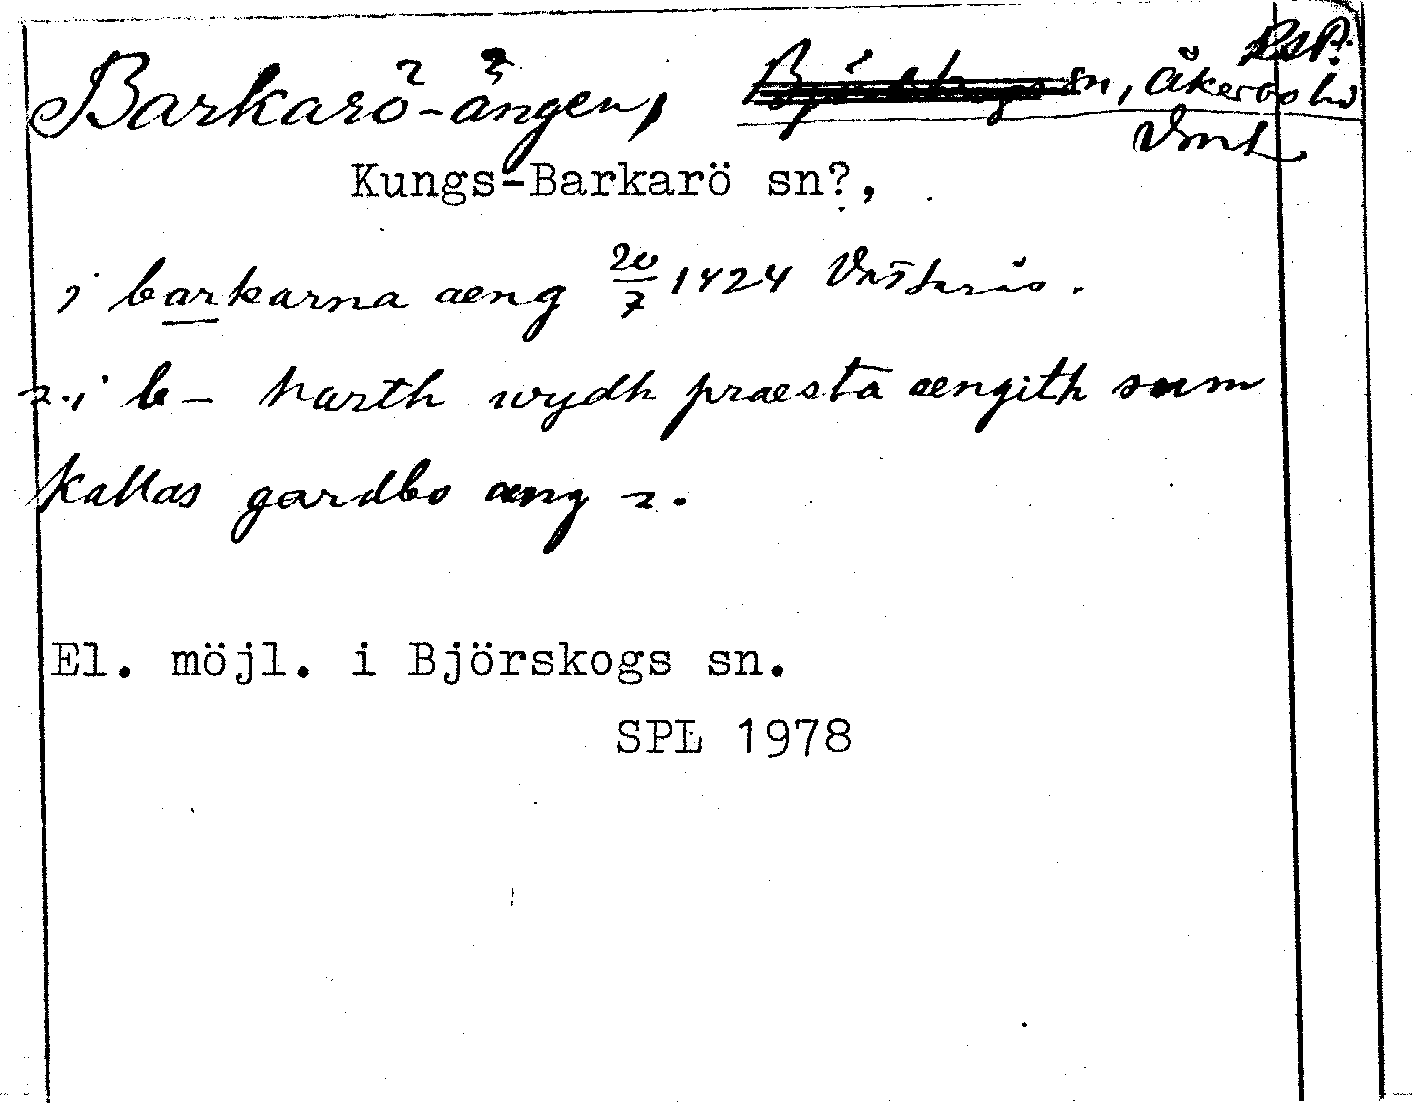 RAP.
Barkarö-ängen, Björskogs sn, Åkerbo hd
Vml
Kungs-Barkarö sn?,
i barkarna aeng 20/7 1424 Västerås.
2. i b – narth wydh praesta aengith sum
kallas gardbo aeng 2.
El. möjl. i Björskogs sn.
SPL 1978